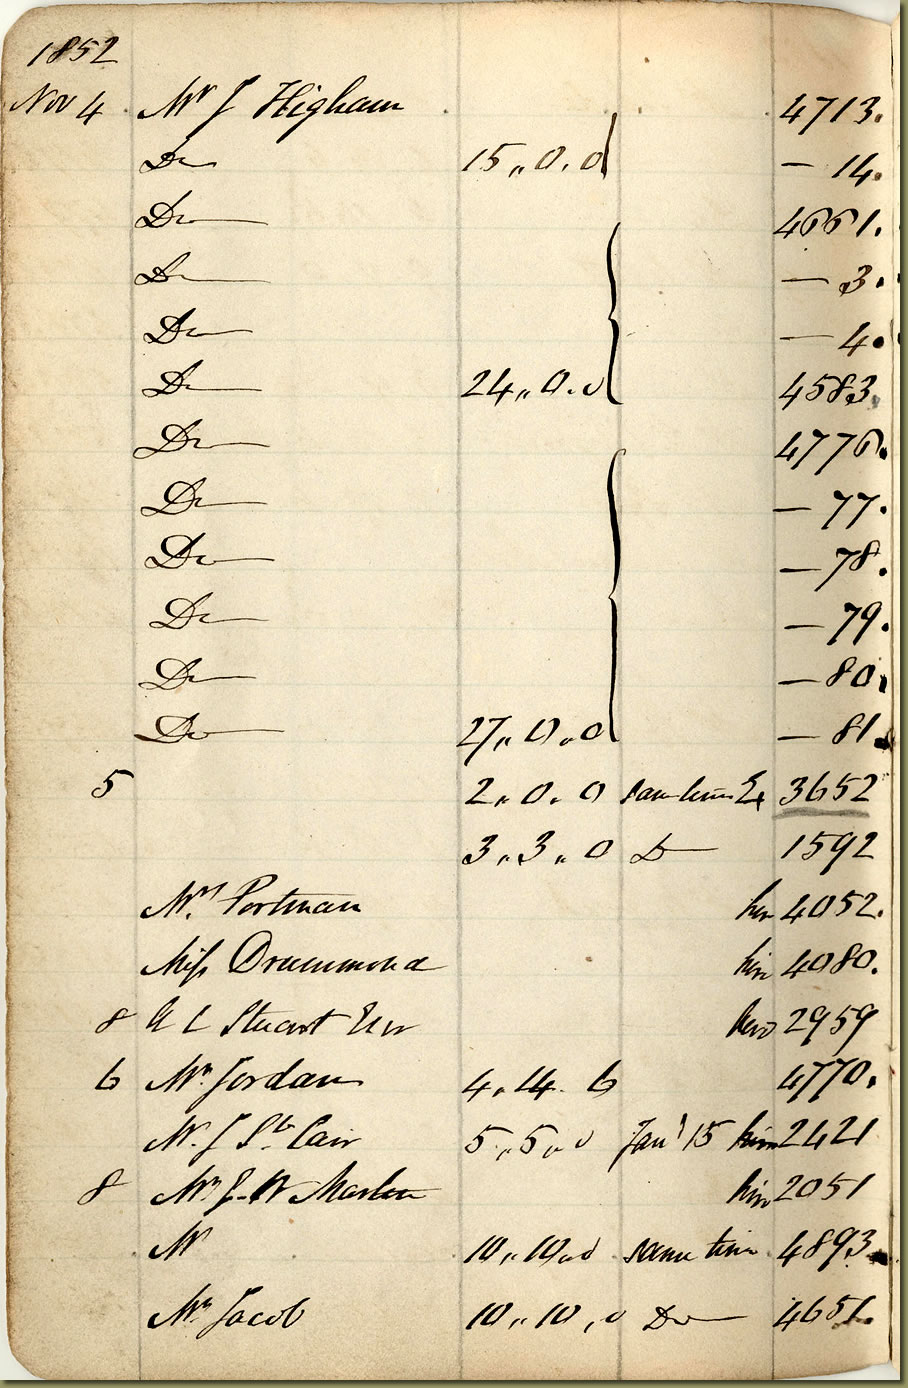 1852
Nov 4 Mr J Higham 4713.
Do 15,,0.0 — 14.
Do 4661.
Do — 3.
Do — 4.
Do 24,,0.0 4583.
Do 4776.
Do — 77.
Do — 78.
Do — 79.
Do — 80.
Do 27,,0.0 — 81.
5 2,,0.0 same time Ex 3652
3,,3,,0 Do 1592
Mrs Portman hire 4052.
Miss Drummond hire 4080.
8 Stuart Esqr hire 2959
6 Mr Jordan 4,,14.6 4770.
Mr. J St. Cair 5,,5,,0 Jany 15 hire 2421
8 Mr J. W Marlen hire 2051
Mr 10,,10,,0 same time 4893.
Mr Jacob 10,,10,,0 Do 4651.